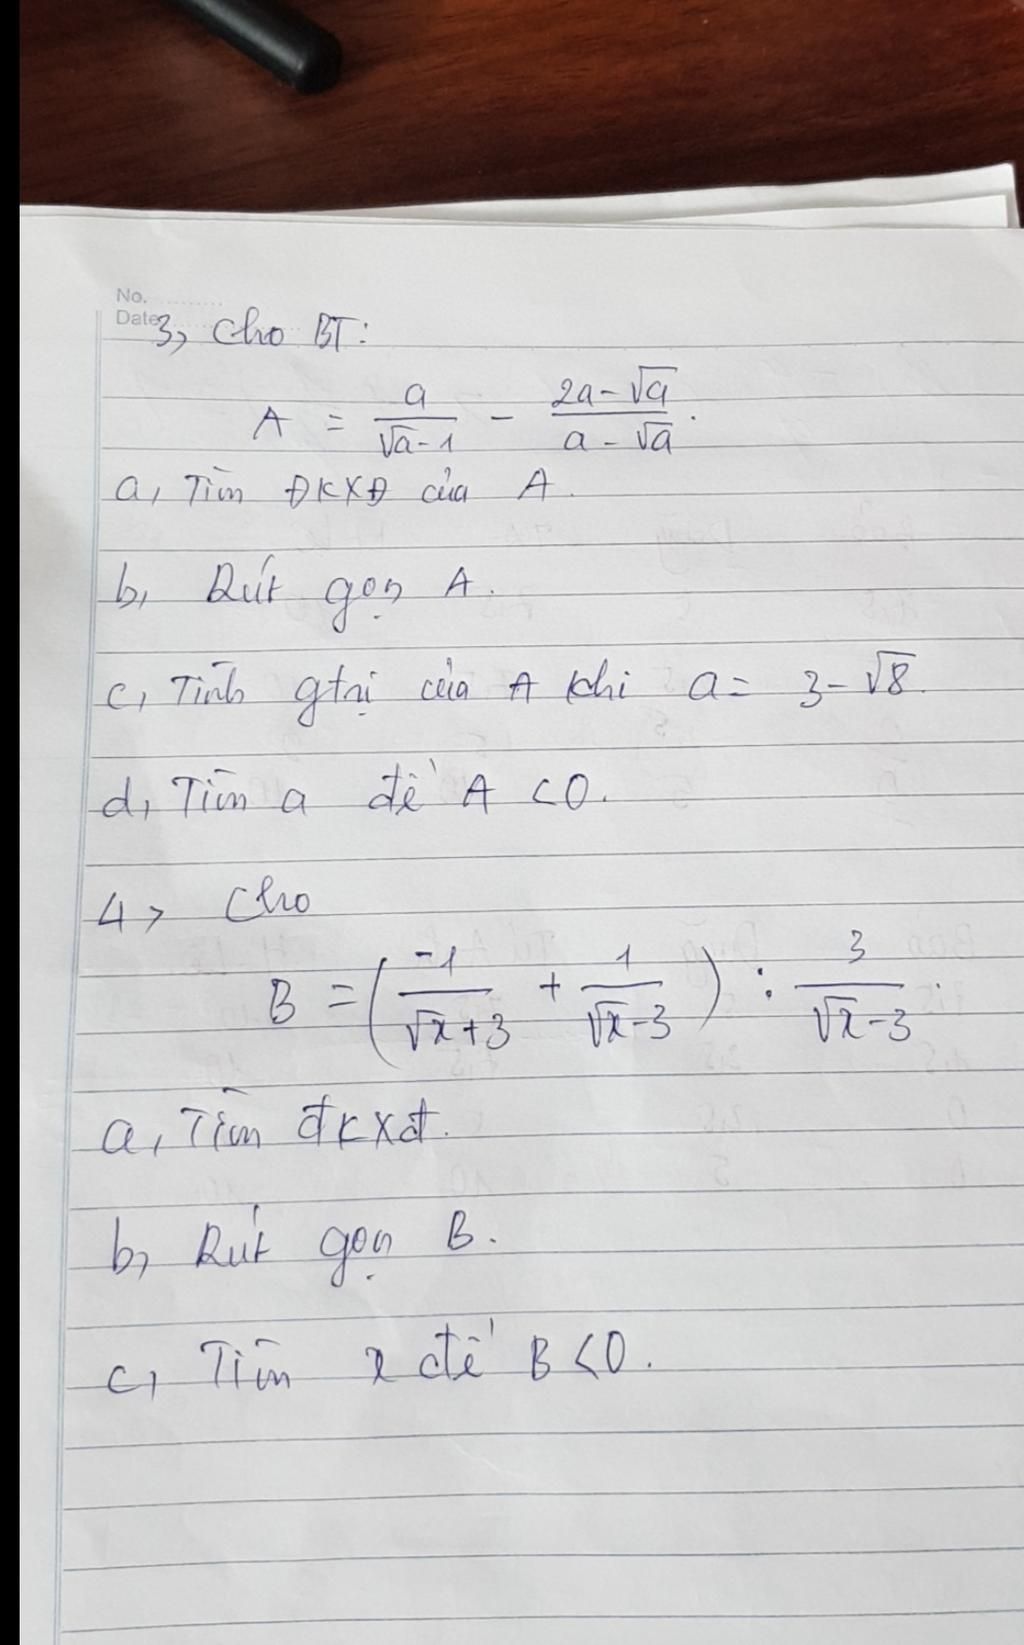 No.
Date
3, Cho BT:
A = a/(√a - 1) - (2a - √a)/(a - √a).
a, Tìm ĐKXĐ của A.
b, Rút gọn A.
c, Tính gtrị của A khi a = 3 - √8.
d, Tìm a để A < 0.
4, Cho
B = (-1/(√x + 3) + 1/(√x - 3)) : 3/(√x - 3).
a, Tìm đkxđ.
b, Rút gọn B.
c, Tìm x để B < 0.